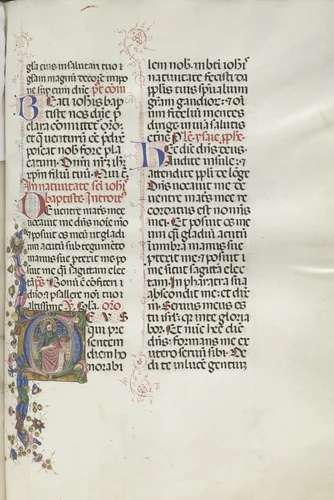 gl̄a eius in salutari tuo ⁊
gl̄am magnū ⁊ decorē impo
nes sup eum dn̄e. p̄t com̄
Beati ioh̄is bap
tiste nos dn̄e p̄
clara comitet̄ oro:
et q̄ uenturū cē p̄dixit
poscat nob̄ fore pla
catum. Dn̄m nr̄m ih̄m
xp̄m filiū tuū. Qui tecū
In natiuitate sc̄i ioh̄is
baptiste. Introitus
De uentre matris mee
uocauit me dn̄s noīe meo
⁊ posuit os meū ut gladiū
acutū sub tegumēto
manus sue protexit me po
suit me q̄i sagittam elec
tā. p̄s Bonū ē confiteri
dn̄o: ⁊ psallere noī tuo
altissime. Gl̄a. oro
DEUS
qui pre
sentem
diem ho
norabi
lem nob̄ in bt̄i ioh̄is
natiuitate fecisti: da
pp̄lis tuis sp̄ualium
gram gaudior̄: ⁊ oīm
fideliū mentes
dirige in uiā salutis
et̄ne.
Hec dic̄ dn̄s deus
Audite insule: ⁊
attendite pp̄li de longe
Dn̄s uocauit me de
uentre matris mee re
cordatus est nominis
mei. Et posuit os me
um q̄i gladiū acutū
in umbra manus sue
protexit me: ⁊ posuit
me sicut sagittā elec
tam. In pharetra sua
abscondit me: et dixit
m̄. Seruus meus es
tu isr̄l: q̄r in te gloria
bor. Et nūc hec dic̄
dn̄s: formans me ex
utero seruū sibi. De
di te in lucē gentium